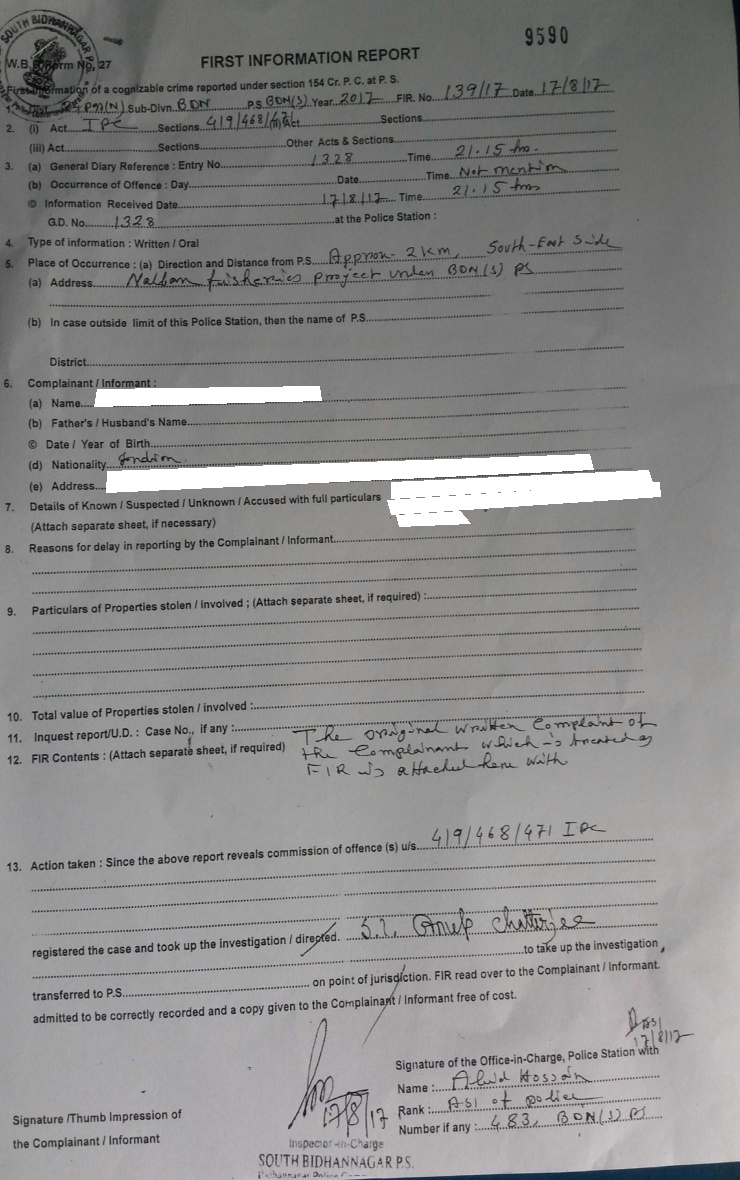 SOUTH BIDHANNAGAR P.S.
9590
W.B. Form No. 27
FIRST INFORMATION REPORT
First Information of a cognizable crime reported under section 154 Cr. P. C. at P. S.
1. Dist. 24 PGS(N) Sub-Divn. BDN P.S. BDN(S) Year 2017 FIR. No. 139/17 Date 17/8/17
2. (i) Act IPC Sections 419/468/471 Sections
(iii) Act Sections Other Acts & Sections
3. (a) General Diary Reference : Entry No. 1328 Time 21.15 hrs.
(b) Occurrence of Offence : Day Date Time Not mention
© Information Received Date 17/8/17 Time 21.15 hrs
G.D. No. 1328 at the Police Station :
4. Type of information : Written / Oral
5. Place of Occurrence : (a) Direction and Distance from P.S. Approx- 2 Km, South-East Side
(a) Address Nalban fisheries project under BDN(S) PS
(b) In case outside limit of this Police Station, then the name of P.S.
District
6. Complainant / Informant :
(a) Name
(b) Father's / Husband's Name
© Date / Year of Birth
(d) Nationality Indian.
(e) Address
7. Details of Known / Suspected / Unknown / Accused with full particulars
(Attach separate sheet, if necessary)
8. Reasons for delay in reporting by the Complainant / Informant
9. Particulars of Properties stolen / involved ; (Attach separate sheet, if required) :
10. Total value of Properties stolen / involved :
11. Inquest report/U.D. : Case No., if any :
12. FIR Contents : (Attach separate sheet, if required) The original written Complaint of
the Complainant which is treated as
FIR is attached here with
13. Action taken : Since the above report reveals commission of offence (s) u/s. 419/468/471 IPC
registered the case and took up the investigation / directed. S.I. Anup Chatterjee
to take up the investigation,
transferred to P.S. on point of jurisdiction. FIR read over to the Complainant / Informant.
admitted to be correctly recorded and a copy given to the Complainant / Informant free of cost.
17/8/17
Signature of the Office-in-Charge, Police Station with
Name : Abid Hossain
Rank : ASI of police
Number if any : 483, BDN(S) PS
Signature /Thumb Impression of
the Complainant / Informant
17/8/17
Inspector-in-Charge
SOUTH BIDHANNAGAR P.S.